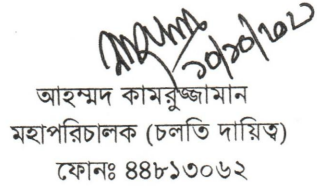 ১০/১০/২০২১
আহম্মদ কামরুজ্জামান
মহাপরিচালক (চলতি দায়িত্ব)
ফোনঃ ৪৪৮১৩০৬২